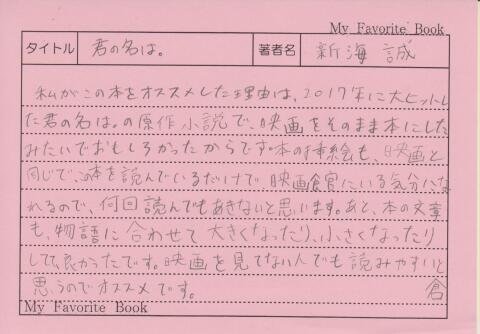 My Favorite Book
タイトル 君の名は。 著者名 新海 誠
私がこの本をオススメした理由は、2017年に大ヒットし
た君の名は。の原作小説で、映画をそのまま本にした
みたいでおもしろかったからです。本の挿絵も、映画と
同じで、この本を読んでいるだけで映画館にいる気分にな
れるので、何回読んでもあきないと思います。あと、本の文章
も、物語に合わせて大きくなったり、小さくなったり
してて、良かったです。映画を見てない人でも読みやすいと
思うのでオススメです。 倉
My Favorite Book